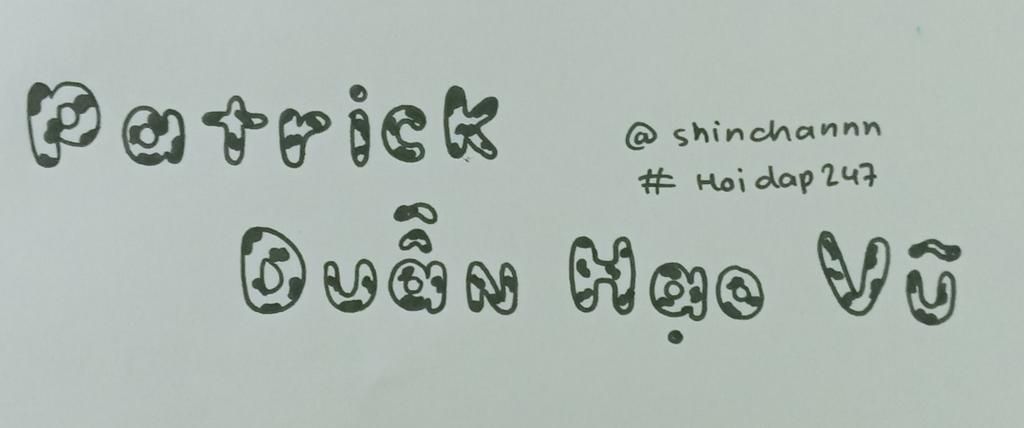 Patrick
@ shinchannn
# Hoidap247
Duẫn Hạo Vũ